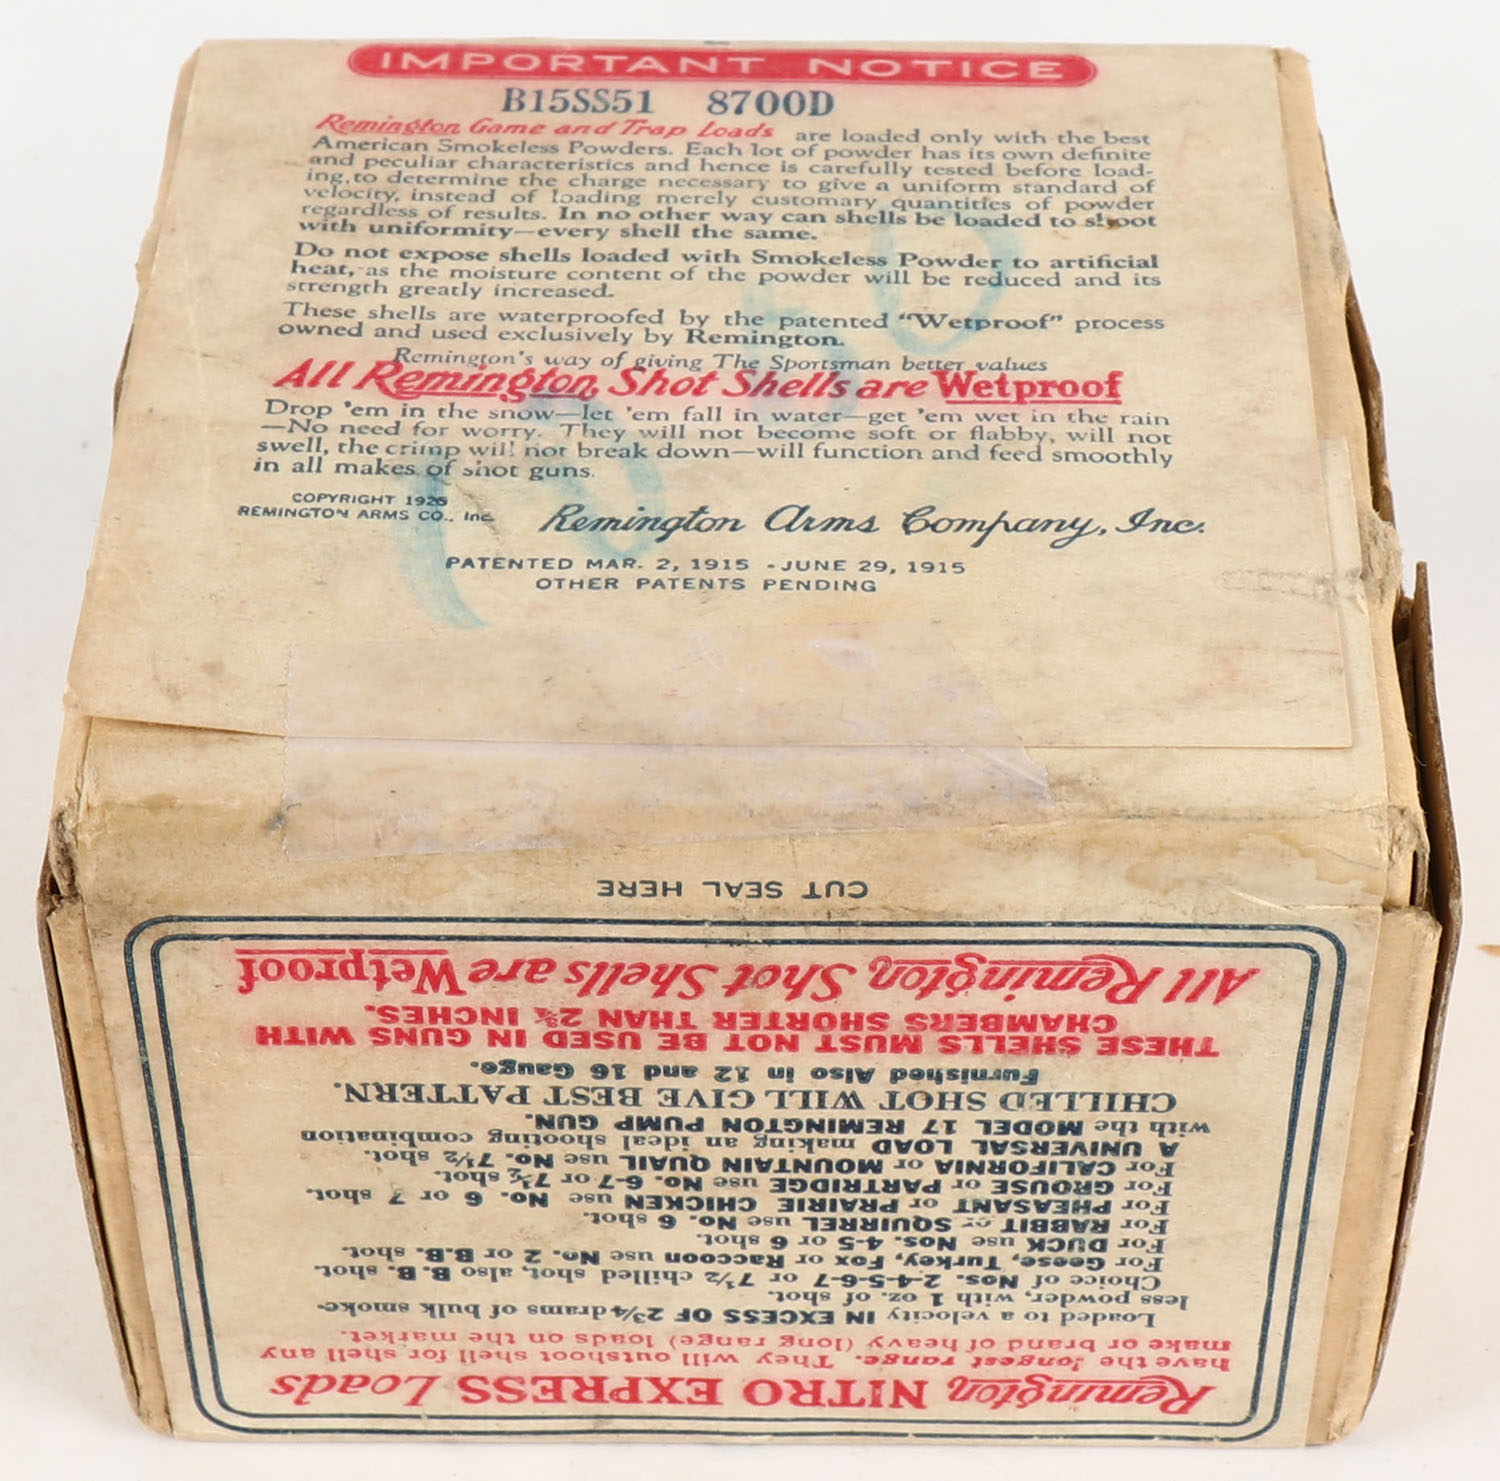 IMPORTANT NOTICE
B15SS51 8700D
Remington Game and Trap Loads are loaded only with the best
American Smokeless Powders. Each lot of powder has its own definite
and peculiar characteristics and hence is carefully tested before load-
ing, to determine the charge necessary to give a uniform standard of
velocity, instead of loading merely customary quantities of powder
regardless of results. In no other way can shells be loaded to shoot
with uniformity—every shell the same.
Do not expose shells loaded with Smokeless Powder to artificial
heat, as the moisture content of the powder will be reduced and its
strength greatly increased.
These shells are waterproofed by the patented "Wetproof" process
owned and used exclusively by Remington.
Remington's way of giving The Sportsman better values
All Remington Shot Shells are Wetproof
Drop 'em in the snow—let 'em fall in water—get 'em wet in the rain
—No need for worry. They will not become soft or flabby, will not
swell, the crimp will not break down—will function and feed smoothly
in all makes of shot guns.
COPYRIGHT 1926
REMINGTON ARMS CO., Inc.
Remington Arms Company, Inc.
PATENTED MAR. 2, 1915 - JUNE 29, 1915
OTHER PATENTS PENDING
CUT SEAL HERE
Remington NITRO EXPRESS Loads
have the longest range. They will outshoot shell for shell any
make or brand of heavy (long range) loads on the market.
Loaded to a velocity IN EXCESS OF 2¾ drams of bulk smoke-
less powder, with 1 oz. of shot.
Choice of Nos. 2-4-5-6-7 or 7½ chilled shot, also B.B. shot.
For Geese, Turkey, Fox or Raccoon use No. 2 or B.B. shot.
For DUCK use Nos. 4-5 or 6 shot.
For RABBIT or SQUIRREL use No. 6 shot.
For PHEASANT or PRAIRIE CHICKEN use No. 6 or 7 shot.
For GROUSE or PARTRIDGE use No. 6-7 or 7½ shot.
For CALIFORNIA or MOUNTAIN QUAIL use No. 7½ shot.
A UNIVERSAL LOAD making an ideal shooting combination
with the MODEL 17 REMINGTON PUMP GUN.
CHILLED SHOT WILL GIVE BEST PATTERN.
Furnished Also in 12 and 16 Gauge.
THESE SHELLS MUST NOT BE USED IN GUNS WITH
CHAMBERS SHORTER THAN 2¾ INCHES.
All Remington Shot Shells are Wetproof